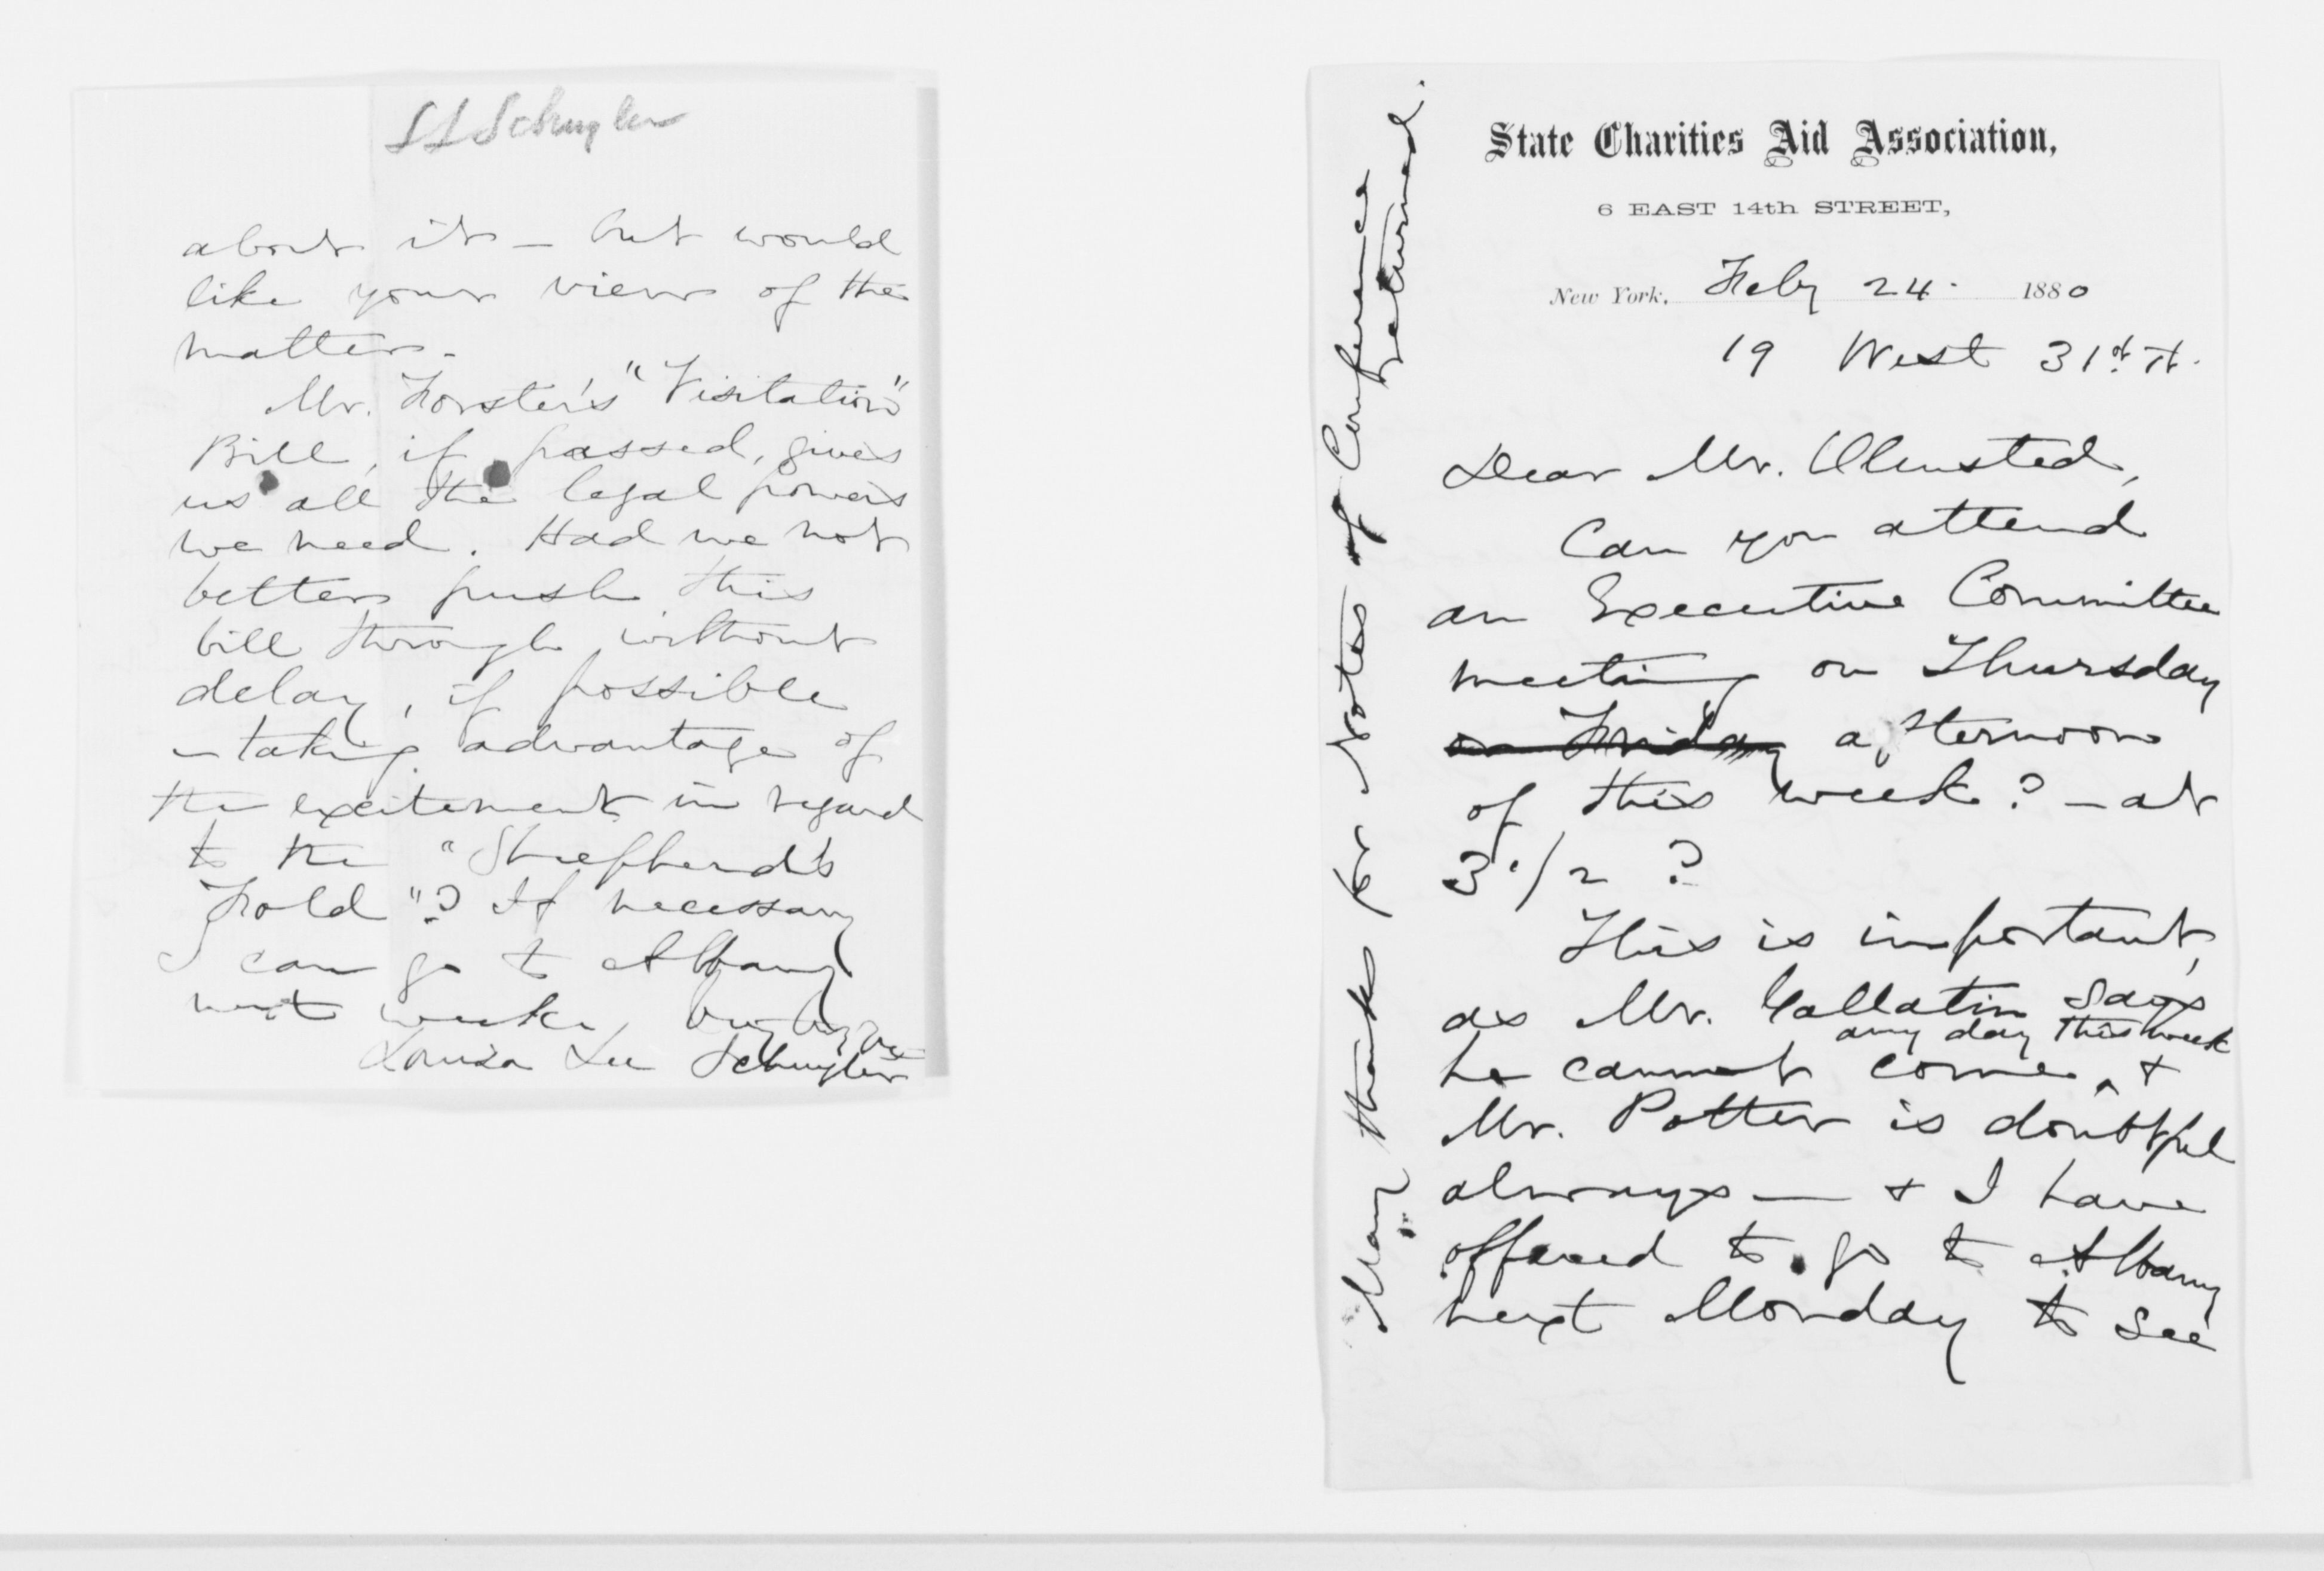 L L Schuyler
about it – but would
like your view of the
matter.
Mr. Forster's "Visitation"
Bill, if passed, gives
us all the legal powers
we need. Had we not
better push this
bill through without
delay, if possible
– taking advantage of
the excitement in regard
to the "Shepherd's
Fold"? If necessary
I can go to Albany
next week,
Louisa Lee Schuyler
State Charities Aid Association,
6 EAST 14th STREET,
New York, Feby 24. 1880
19 West 31st St.
Dear Mr. Olmsted,
Can you attend
an Executive Committee
meeting on Thursday
or Friday afternoon
of this week? – at
3 1/2 ?
This is important,
as Mr. Gallatin says
any day this week
he cannot come, +
Mr. Potter is doubtful
always – + I have
offered to go to Albany
next Monday to see
Many thanks for Notes of Conference
returned.